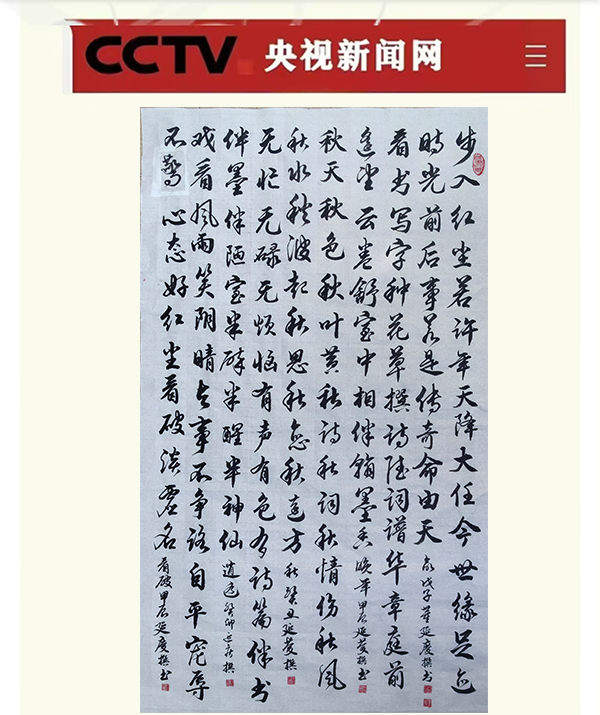 CCTV 央视新闻网
步入红尘若许年天降大任今世缘足迹
时光前后事若是传奇命由天 戊子年延庆撰书
看书写字种花草撰诗词谱华章庭前
遥望云卷舒室中相伴翰墨香 晚年 甲辰延庆撰书
秋天秋色秋叶黄秋诗秋词秋情伤秋风
秋水秋波起秋思秋念秋远方 秋 癸丑延庆撰
无忙无碌无烦恼有声有色有诗篇伴书
伴墨伴陋室半醉半醒半神仙 逍遥 癸卯立秋撰
戏看风雨笑阴晴与事不争路自平宠辱
不惊心态好红尘看破淡虚名 看破 甲辰延庆撰书